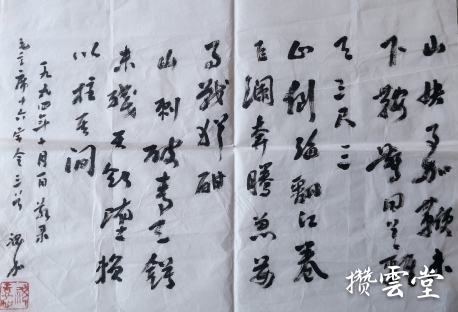 山快马加鞭未
下鞍驚回首離
天三尺三
山倒海翻江卷
巨瀾奔騰急萬
马戰犹酣
山刺破青天锷
未殘天欲墮賴
以拄其间
一九九四年十月一日敬录
毛主席十六字令三首
攒雲堂